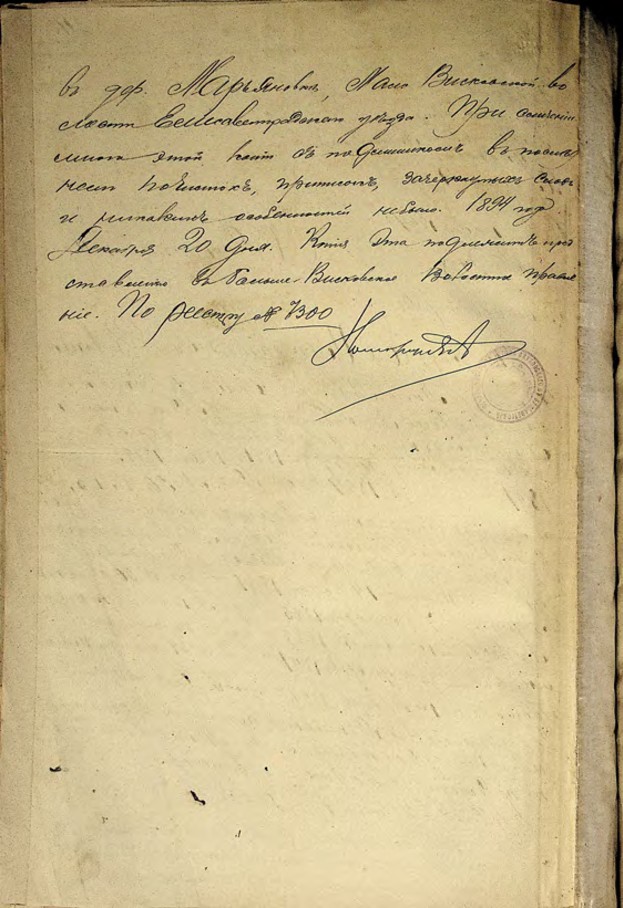 въ дер. Марьяновкѣ, Мало Висковской во
лости Елисаветградскаго уѣзда. При сличеніи
мною этой копіи съ подлинникомъ въ послѣд
немъ почистокъ, приписокъ, зачеркнутыхъ словъ
и никакихъ особенностей небыло. 1894 год
Декабря 20 дня. Копія эта подлежитъ пред
ставленію въ Больше-Висковское Волостное Правле
ніе. По реестру № 7300